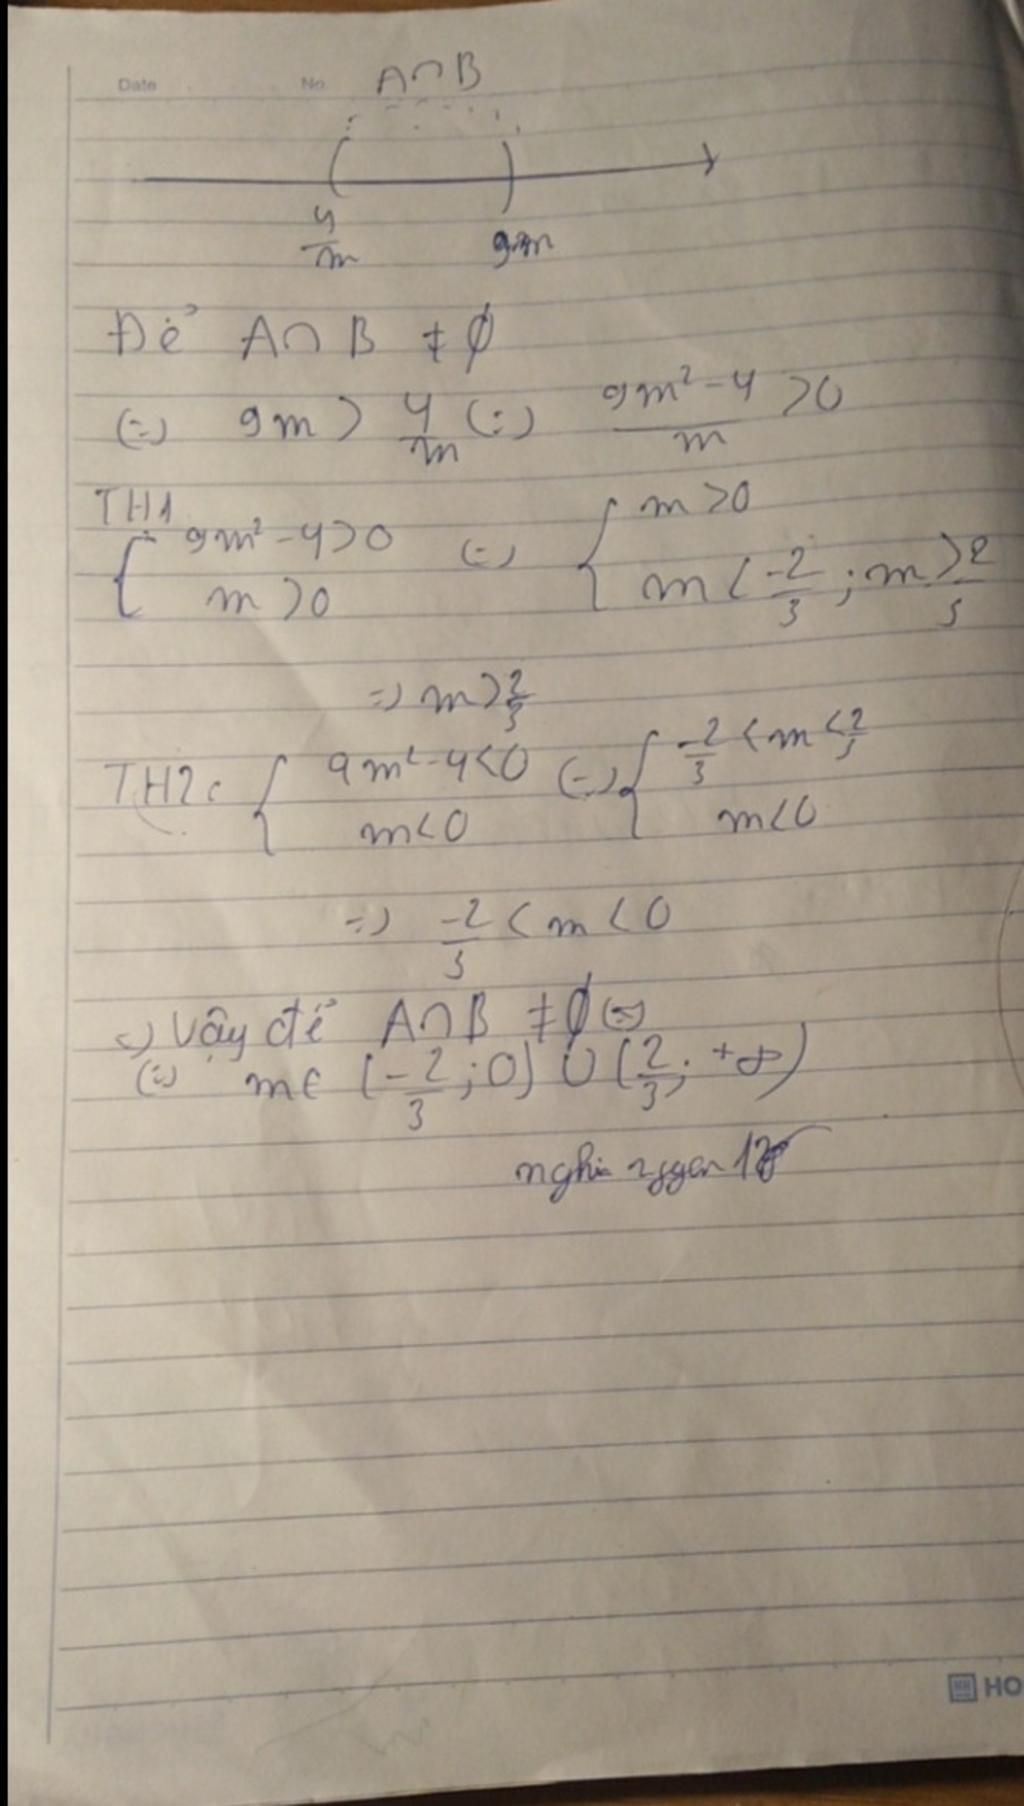 Date No A∩B
4/m 9m
Để A∩B ≠ ∅
(=) 9m > 4/m (=) (9m² - 4)/m > 0
TH1: { 9m² - 4 > 0 (=) { m > 0
m > 0 m < -2/3 ; m > 2/3
=) m > 2/3
TH2: { 9m² - 4 < 0 (=) { -2/3 < m < 2/3
m < 0 m < 0
=) -2/3 < m < 0
=) Vậy để A∩B ≠ ∅ (=)
(=) m ∈ (-2/3 ; 0) ∪ (2/3 ; +∞)
HO